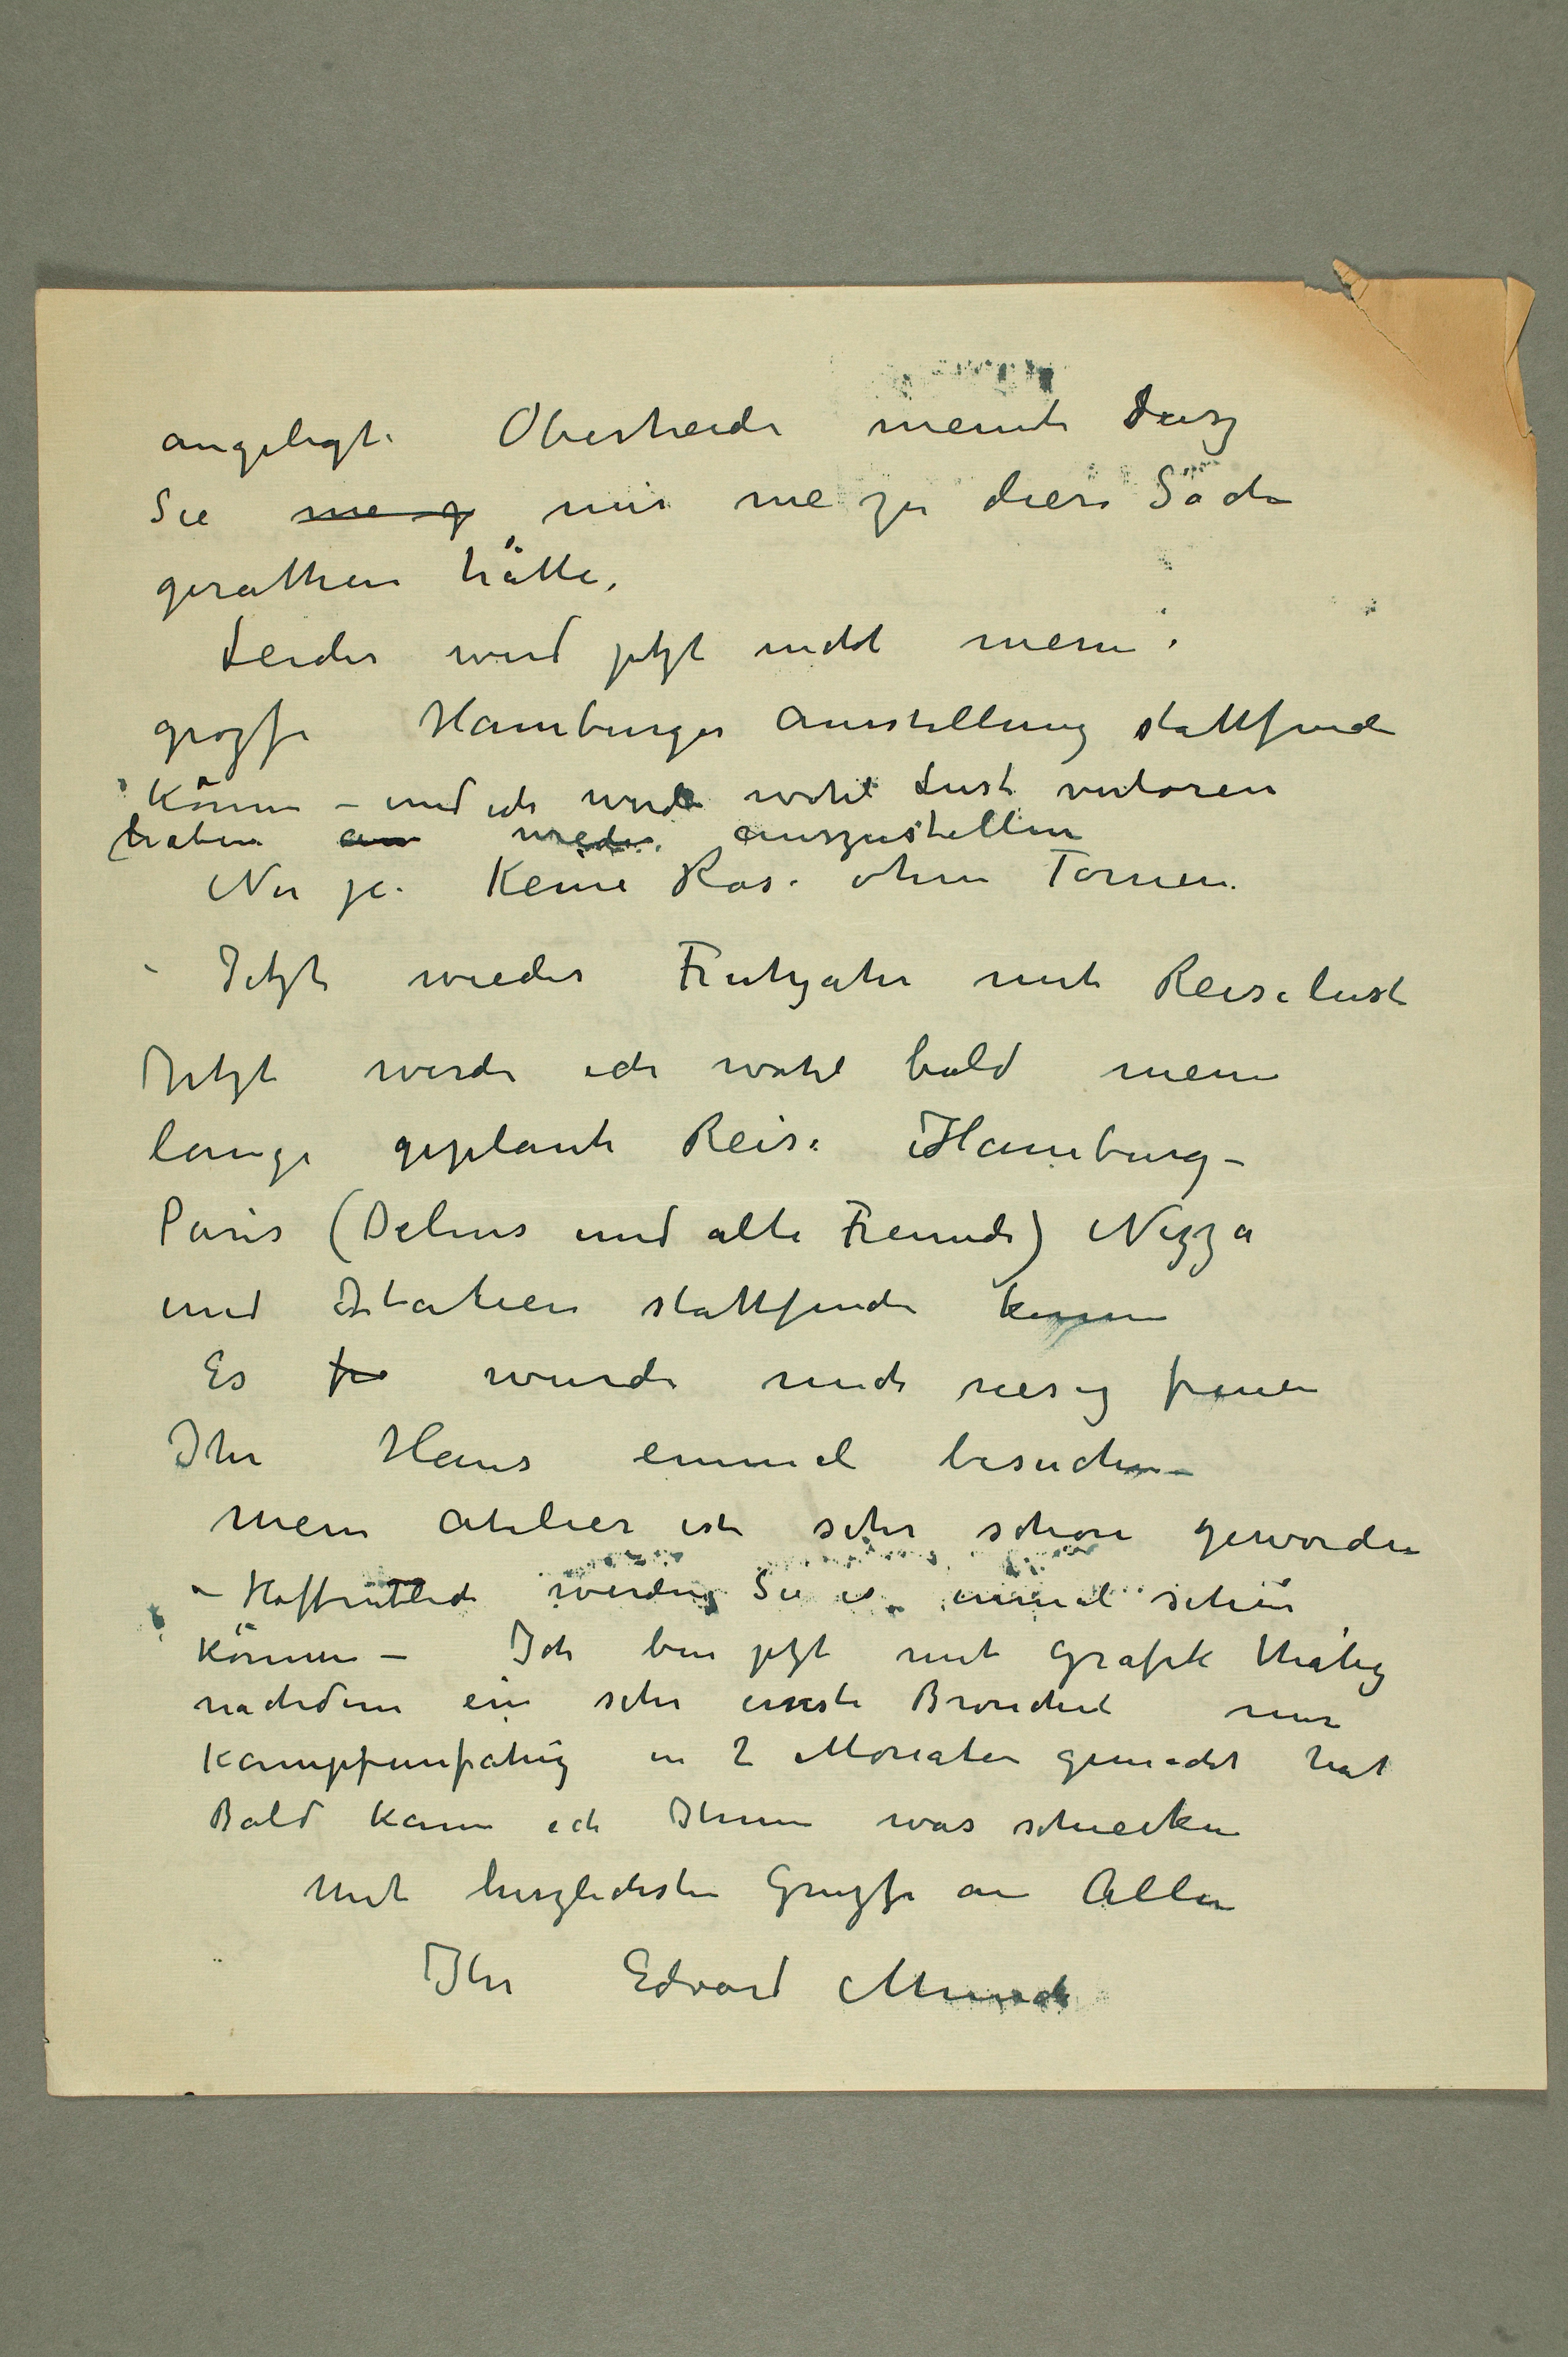 angelegt. Oberheide meinte dasz
Sie me z mir nie zu diese Sache
gerathen hätte.
Leider wird jetzt nicht meine
groszse Hamburger Ausstellung stattfinde
können – und ich werde wohl Lust verloren
haben an wieder auszustellen
Nu ja. Keine Rose ohne Tornen.
– Jetzt wieder Fruhjahr mit Reiselust
Jetzt werde ich wohl bald meine
lange geplante Reise Hamburg –
Paris (Delius und alte Freunde) Nizza
und Italien stattfinde können
Es fr wurde mich riesig freuen
Ihr Haus einmal besuchen –
Mein Atelier ist sehr schön geworden
– Hoffentlich werden Sie es einmal sehen
können – Ich bin jetzt mit Grafik thätig
nachdem ein sehr ernste Bronchit mir
kampfunfähig in 2 Monaten gemacht hat
Bald kann ich Ihnen was schicken
Mit herzlichsten Gruszse an Allen
Ihr Edvard Munch